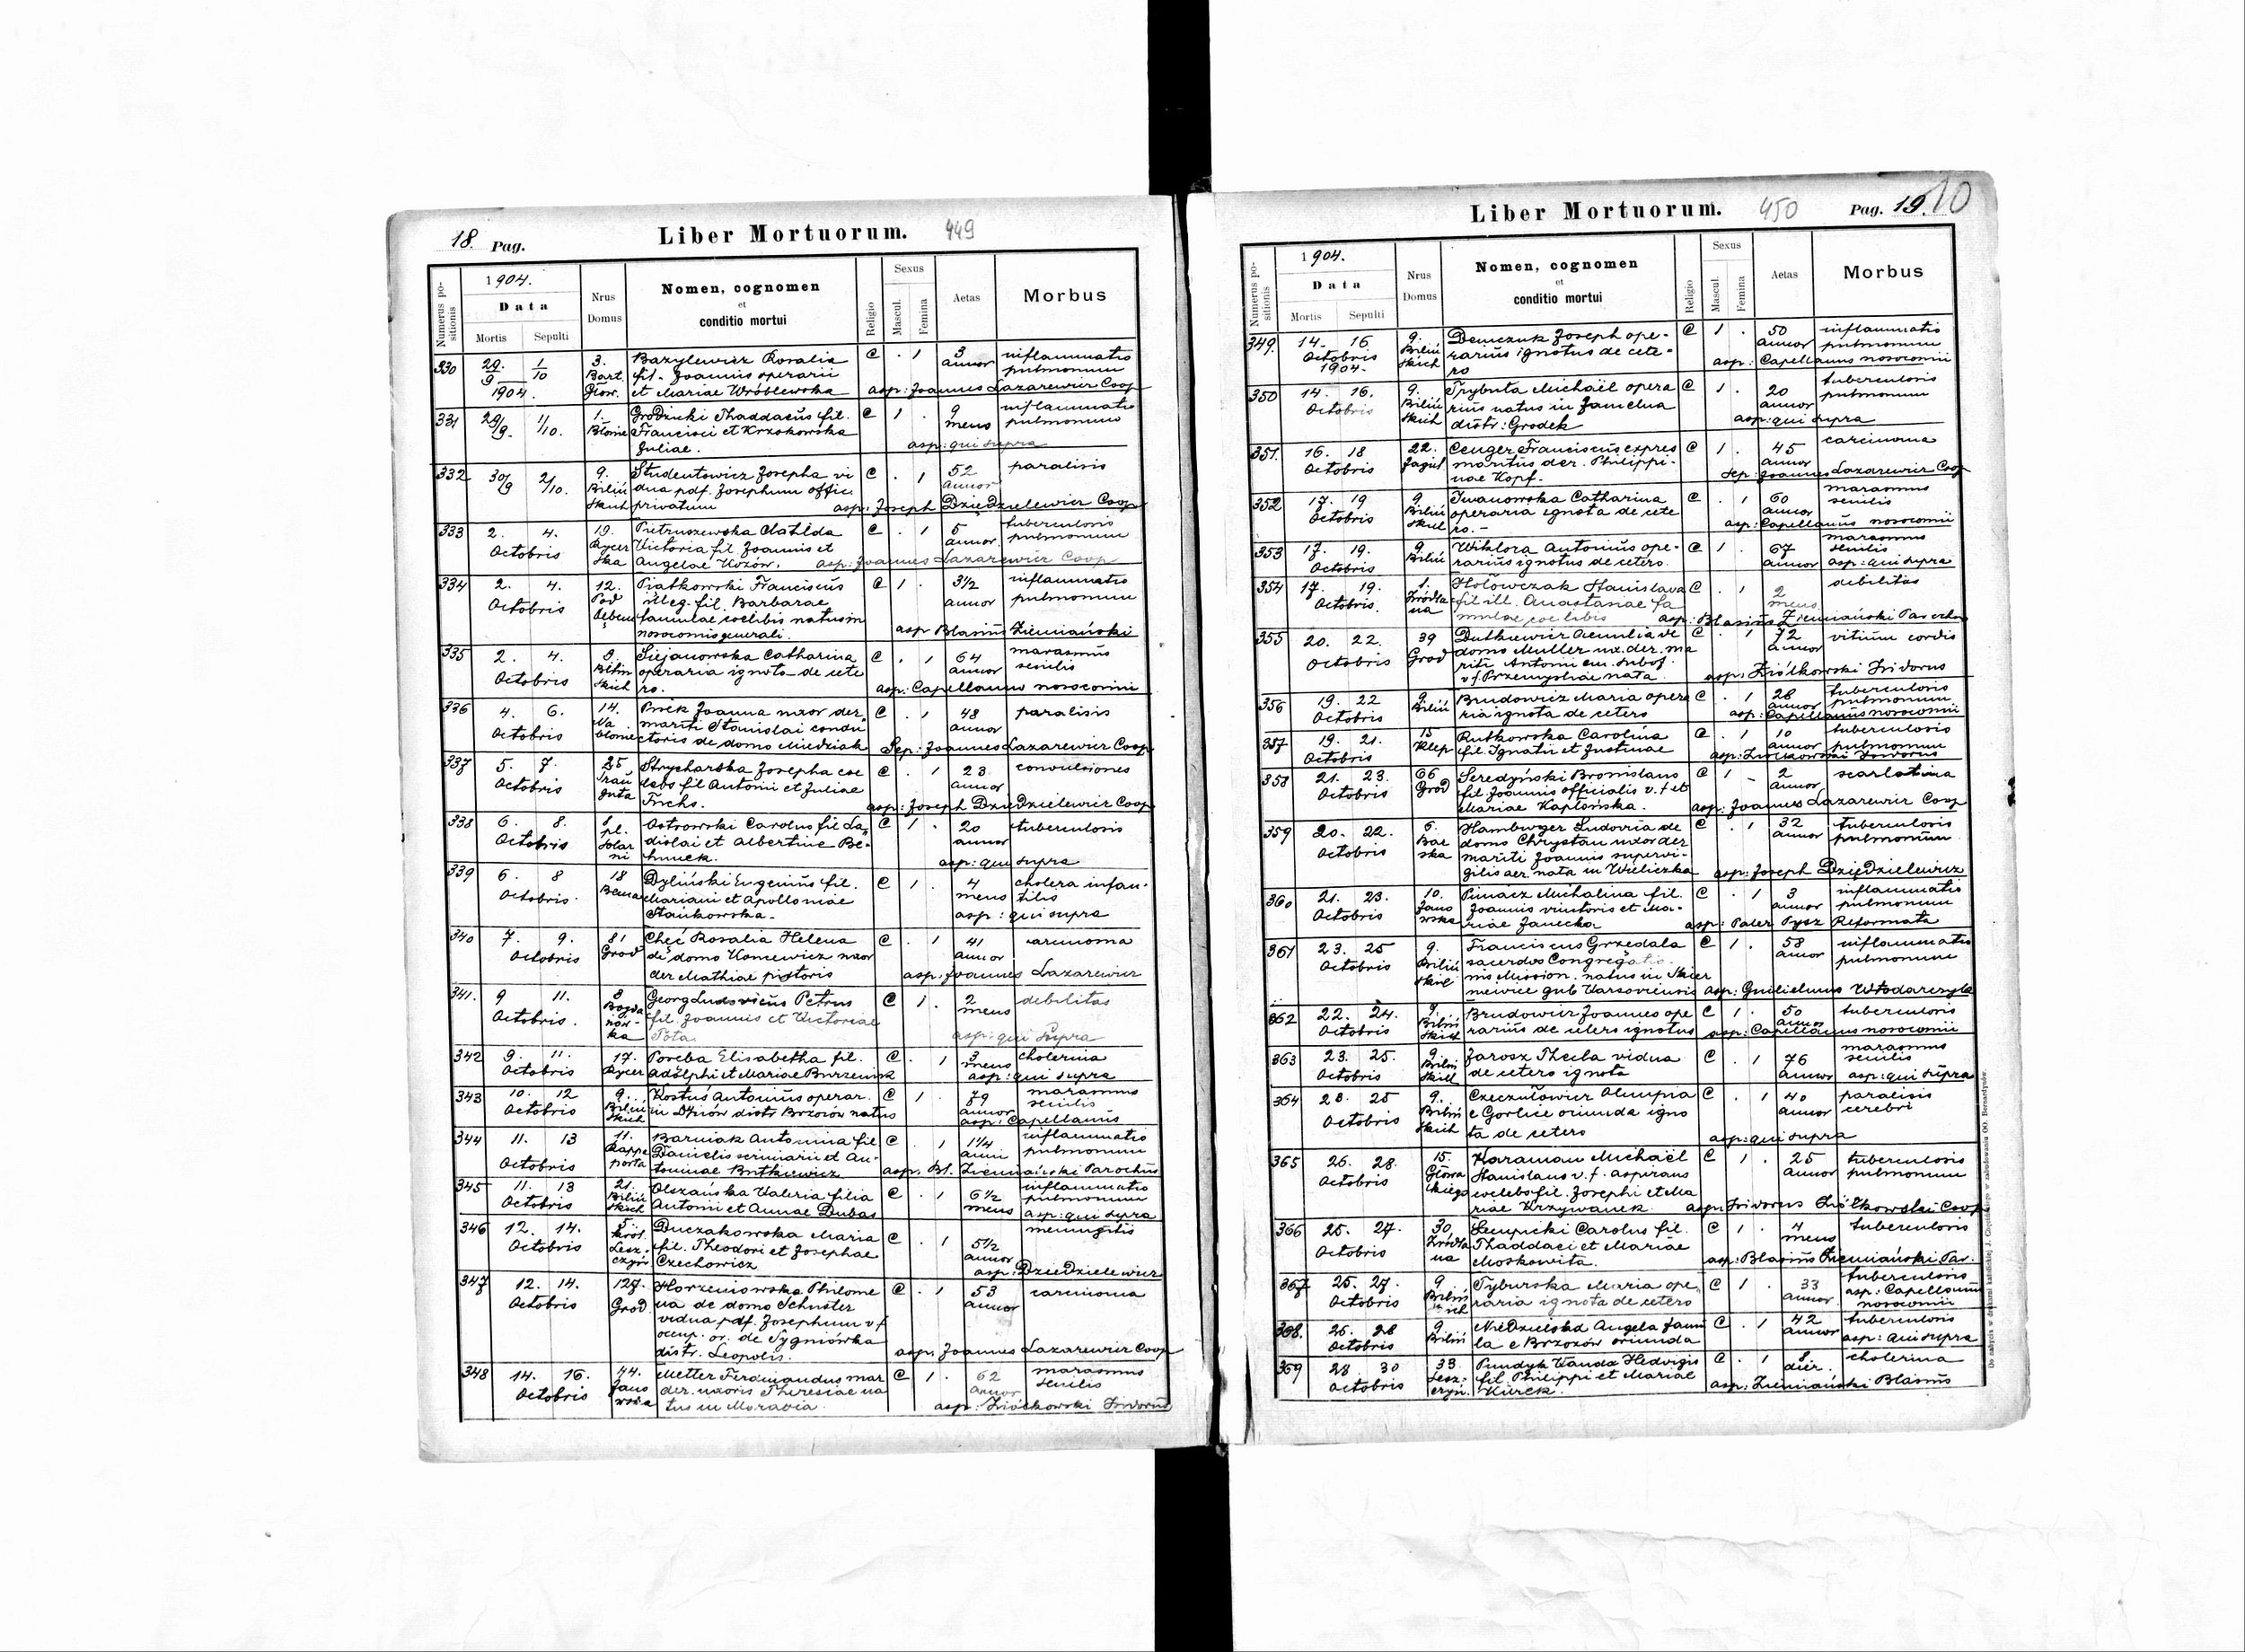 18. Pag. Liber Mortuorum. 449
Numerus positionis
1904.
Data
Mortis Sepulti
Nrus Domus
Nomen, cognomen
et
conditio mortui
Religio
Sexus
Mascul. Femina
Aetas
Morbus
330 29/9 1904. 1/10 3. Bazylewicz Rosalia C . 1 3 inflammatio
Bart. fil. Joannis operarii annor pulmonum
Głow. et Mariae Wróblewska asp: Joannes Lazarewicz Coop
331 29/9. 1/10. 1. Grodzicki Thaddaeus fil. C 1 . 9 inflammatio
Błonie Francisci et Krzokowska mens pulmonum
Juliae. asp: qui supra
332 30/9 2/10. 9. Studentowicz Josepha vi C . 1 52 paralisis
Biliń dua pdf. Josephum offic annor
skich privatum asp: Joseph Dziedzielewicz Coop
333 2. 4. 19. Pietruszewska Clatilda C . 1 5 tuberculosis
Octobris Rycer Victoria fil Joannis et annor pulmonum
ska Angelae Kozów. asp: Joannes Lazarewicz Coop
334 2. 4. 12. Piatkowski Franciscus C 1 . 3½ inflammatio
Octobris Pod illeg. fil. Barbarae annor pulmonum
Dębem famulae coelibis natus in
nosocomio generali. asp Blasius Ziemiański
335 2. 4. 9. Siejanowska Catharina C . 1 64 marasmus
Octobris Biliń operaria ignota de cete annor senilis
skich ro. asp: Capellanus nosocomii
336 4. 6. 14. Pisek Joanna uxor der. C . 1 48 paralisis
Octobris Na mariti Stanislai condu annor
błonie ctoris de domo Miedziak Sep: Joannes Lazarewicz Coop
337 5. 7. 25 Strycharska Josepha coe C . 1 23 convulsiones
Octobris Trau lebs fil Antonii et Juliae annor
guta Fuchs. asp: Joseph Dziedzielewicz Coop
338 6. 8. 1 Ostrowski Carolus fil La C 1 . 20 tuberculosis
Octobris pl. dislai et Albertine Be- annor
Solar hmek. asp: qui supra
ni
339 6. 8 18 Dyliński Eugenius fil. C 1 . 4 cholera infan-
Octobris. Bema Mariani et Apolloniae mens tilis
Stankowska. asp: qui supra
340 7. 9. 81 Chęć Rosalia Helena C . 1 41 carcinoma
Octobris Grod de domo Koncewicz uxor annor
der Mathiae pistoris asp: Joannes Lazarewicz
341. 9 11. 8 Georg Ludovicus Petrus C 1 . 2 debilitas
Octobris. Bogda fil Joannis et Victoriae mens
nów- Pota. asp: qui supra
ka
342 9. 11. 17. Poreba Elisabetha fil. C . 1 3 cholerina
Octobris Rycer Adolphi et Mariae Burzenisk mens asp: qui supra
343 10. 12 9. Kostuś Antonius operar. C 1 . 79 marasmus
Octobris Biliń in Dynów distr Brzozów natus annor senilis
skich asp: Capellanus
344 11. 13 11. Barniak Antonina fil C . 1 1¼ inflammatio
Octobris Rappa Danielis scriniarii et An- anni pulmonum
porta toninae Butkiewicz asp. Bl. Ziemiański Parochus
345 11. 13 21. Olszańska Valeria filia C . 1 6½ inflammatio
Octobris Biliń Antonii et Annae Dubas mens pulmonum
skich asp: qui supra
346 12. 14. 5 Duczakowska Maria C . 1 5½ meningitis
Octobris Król. fil. Theodori et Josephae annor
Lesz. Czechowicz asp: Dziedzielewicz
czyń
347 12. 14. 127. Korzeniowska Philome C . 1 53 carcinoma
Octobris Grod. na de domo Schuster annor
vidua pdf. Josephum v f
occup. or. de Sygniówka
distr. Leopolis. asp: Joannes Lazarewicz Coop
348 14. 16. 44. Metter Ferdinandus mar C 1 . 62 marasmus
Octobris Jano der. uxoris Theresiae na annor senilis
wska tus in Moravia. asp: Ziółkowski Isidorus
Liber Mortuorum. 450 Pag. 19. 10
Numerus positionis
1904.
Data
Mortis Sepulti
Nrus Domus
Nomen, cognomen
et
conditio mortui
Religio
Sexus
Mascul. Femina
Aetas
Morbus
349. 14. 16. 9. Demczuk Joseph ope- C 1 . 50 inflammatio
Octobris Biliń rarius ignotus de cete- annor pulmonum
1904. skich ro asp: Capellanus nosocomii
350 14. 16. 9. Trybuta Michaël opera C 1 . 20 tuberculosis
Octobris Biliń rius natus in Zamelna annor pulmonum
skich distr: Grodek asp: qui supra
351. 16. 18 22. Cenger Franciscus expres C 1 . 45 carcinoma
Octobris Jagiel maritus der. Philippi- annor
nae Kopf. Sep: Joannes Lazarewicz Coop
352 17. 19 9 Iwanowska Catharina C . 1 60 marasmus
Octobris Biliń operaria ignota de cete annor senilis
skich ro.- asp: Capellanus nosocomii
353 17. 19. 9. Wiktora Antonius ope- C 1 . 67 marasmus
Octobris Biliń rarius ignotus de cetero. annor senilis
asp: qui supra
354 17. 19. 1. Hołówczak Stanislava C . 1 2 debilitas
Octobris. Źródla fil ill. Anastanae fa mens
na mulae coelibis asp: Blasius Ziemiański Parochus
355 20. 22. 39 Dutkiewicz Aemilia de C . 1 72 vitium cordis
Octobris Grod domo Muller ux. der. ma annor
riti Antonii em. subof.
v f. Przemysliae nata. asp: Ziółkowski Isidorus
356 19. 22 9 Brudowicz Maria opera C . 1 28 tuberculosis
Octobris Biliń ria ignota de cetero annor pulmonum
asp: Capellanus nosocomii
357 19. 21. 15 Rutkowska Carolina C . 1 10 tuberculosis
Octobris Klep fil. Ignatii et Justinae annor pulmonum
358 21. 23. 66 Seredyński Bronislaus C 1 - 2 scarlatina
Octobris Grod fil. Joannis officialis v. f et annor
Mariae Kapłońska. asp: Joannes Lazarewicz Coop
359 20. 22. 6. Hamburger Ludovica de C . 1 32 tuberculosis
Octobris Bar domo Chrystan uxor der annor pulmonum
ska mariti Joannis supervi-
gilis aer nata in Wieliczka asp: Joseph Dziedzielewicz
360 21. 23. 10. Piniacz Michalina fil. C . 1 3 inflammatio
Octobris Jano Joannis vinitoris et Ma- annor pulmonum
wska riae Janecka asp: Pater Pysz Reformata
361 23. 25 9. Franciscus Grzedala C 1 . 58 inflammatio
Octobris Biliń sacerdos Congregatio annor pulmonum
skich nis Mission. natus in Skier
niewice gub Varsoviensis asp: Guilielmus Włodarczyk
362 22. 24. 9. Brudowicz Joannes ope C 1 . 50 tuberculosis
Octobris Biliń rarius de cetero ignotus annor
skich asp: Capellanus nosocomii
363 23. 25. 9. Jarosz Thecla vidua C . 1 76 marasmus
Octobris Biliń de cetero ignota annor senilis
skich asp: qui supra
364 23. 25 9. Czeczułowicz Olimpia C . 1 40 paralisis
Octobris Biliń e Gorlice oriunda igno annor cerebri
skich ta de cetero asp: qui supra
365 26. 28. 15. Karaman Michaël C 1 . 25 tuberculosis
Octobris Głowa Stanislaus v. f. aspirans annor pulmonum
ckiego coelebs fil. Josephi et Ma
riae Krzywanek. asp: Isidorus Ziółkowski Coop
366 25. 27. 30. Łeupicki Carolus fil. C 1 . 4 tuberculosis
Octobris Źródla Thaddaei et Mariae mens
na Moskowita. asp: Blasius Ziemiański Par.
367 25. 27. 9 Tyburska Maria ope, C 1 . 33 tuberculosis
Octobris Biliń raria ignota de cetero annor. asp: Capellanus
skich nosocomii
368. 26. 28 9. Niedzielska Angela famu C . 1 42 tuberculosis
Octobris Biliń la e Brzozów oriunda annor asp: qui supra
369 28. 30 33. Pundyk Vanda Hedvigis C . 1 8 cholerina
Octobris Lesz- fil. Philippi et Mariae dier.
czyń. Kurek. asp: Ziemiański Blasius